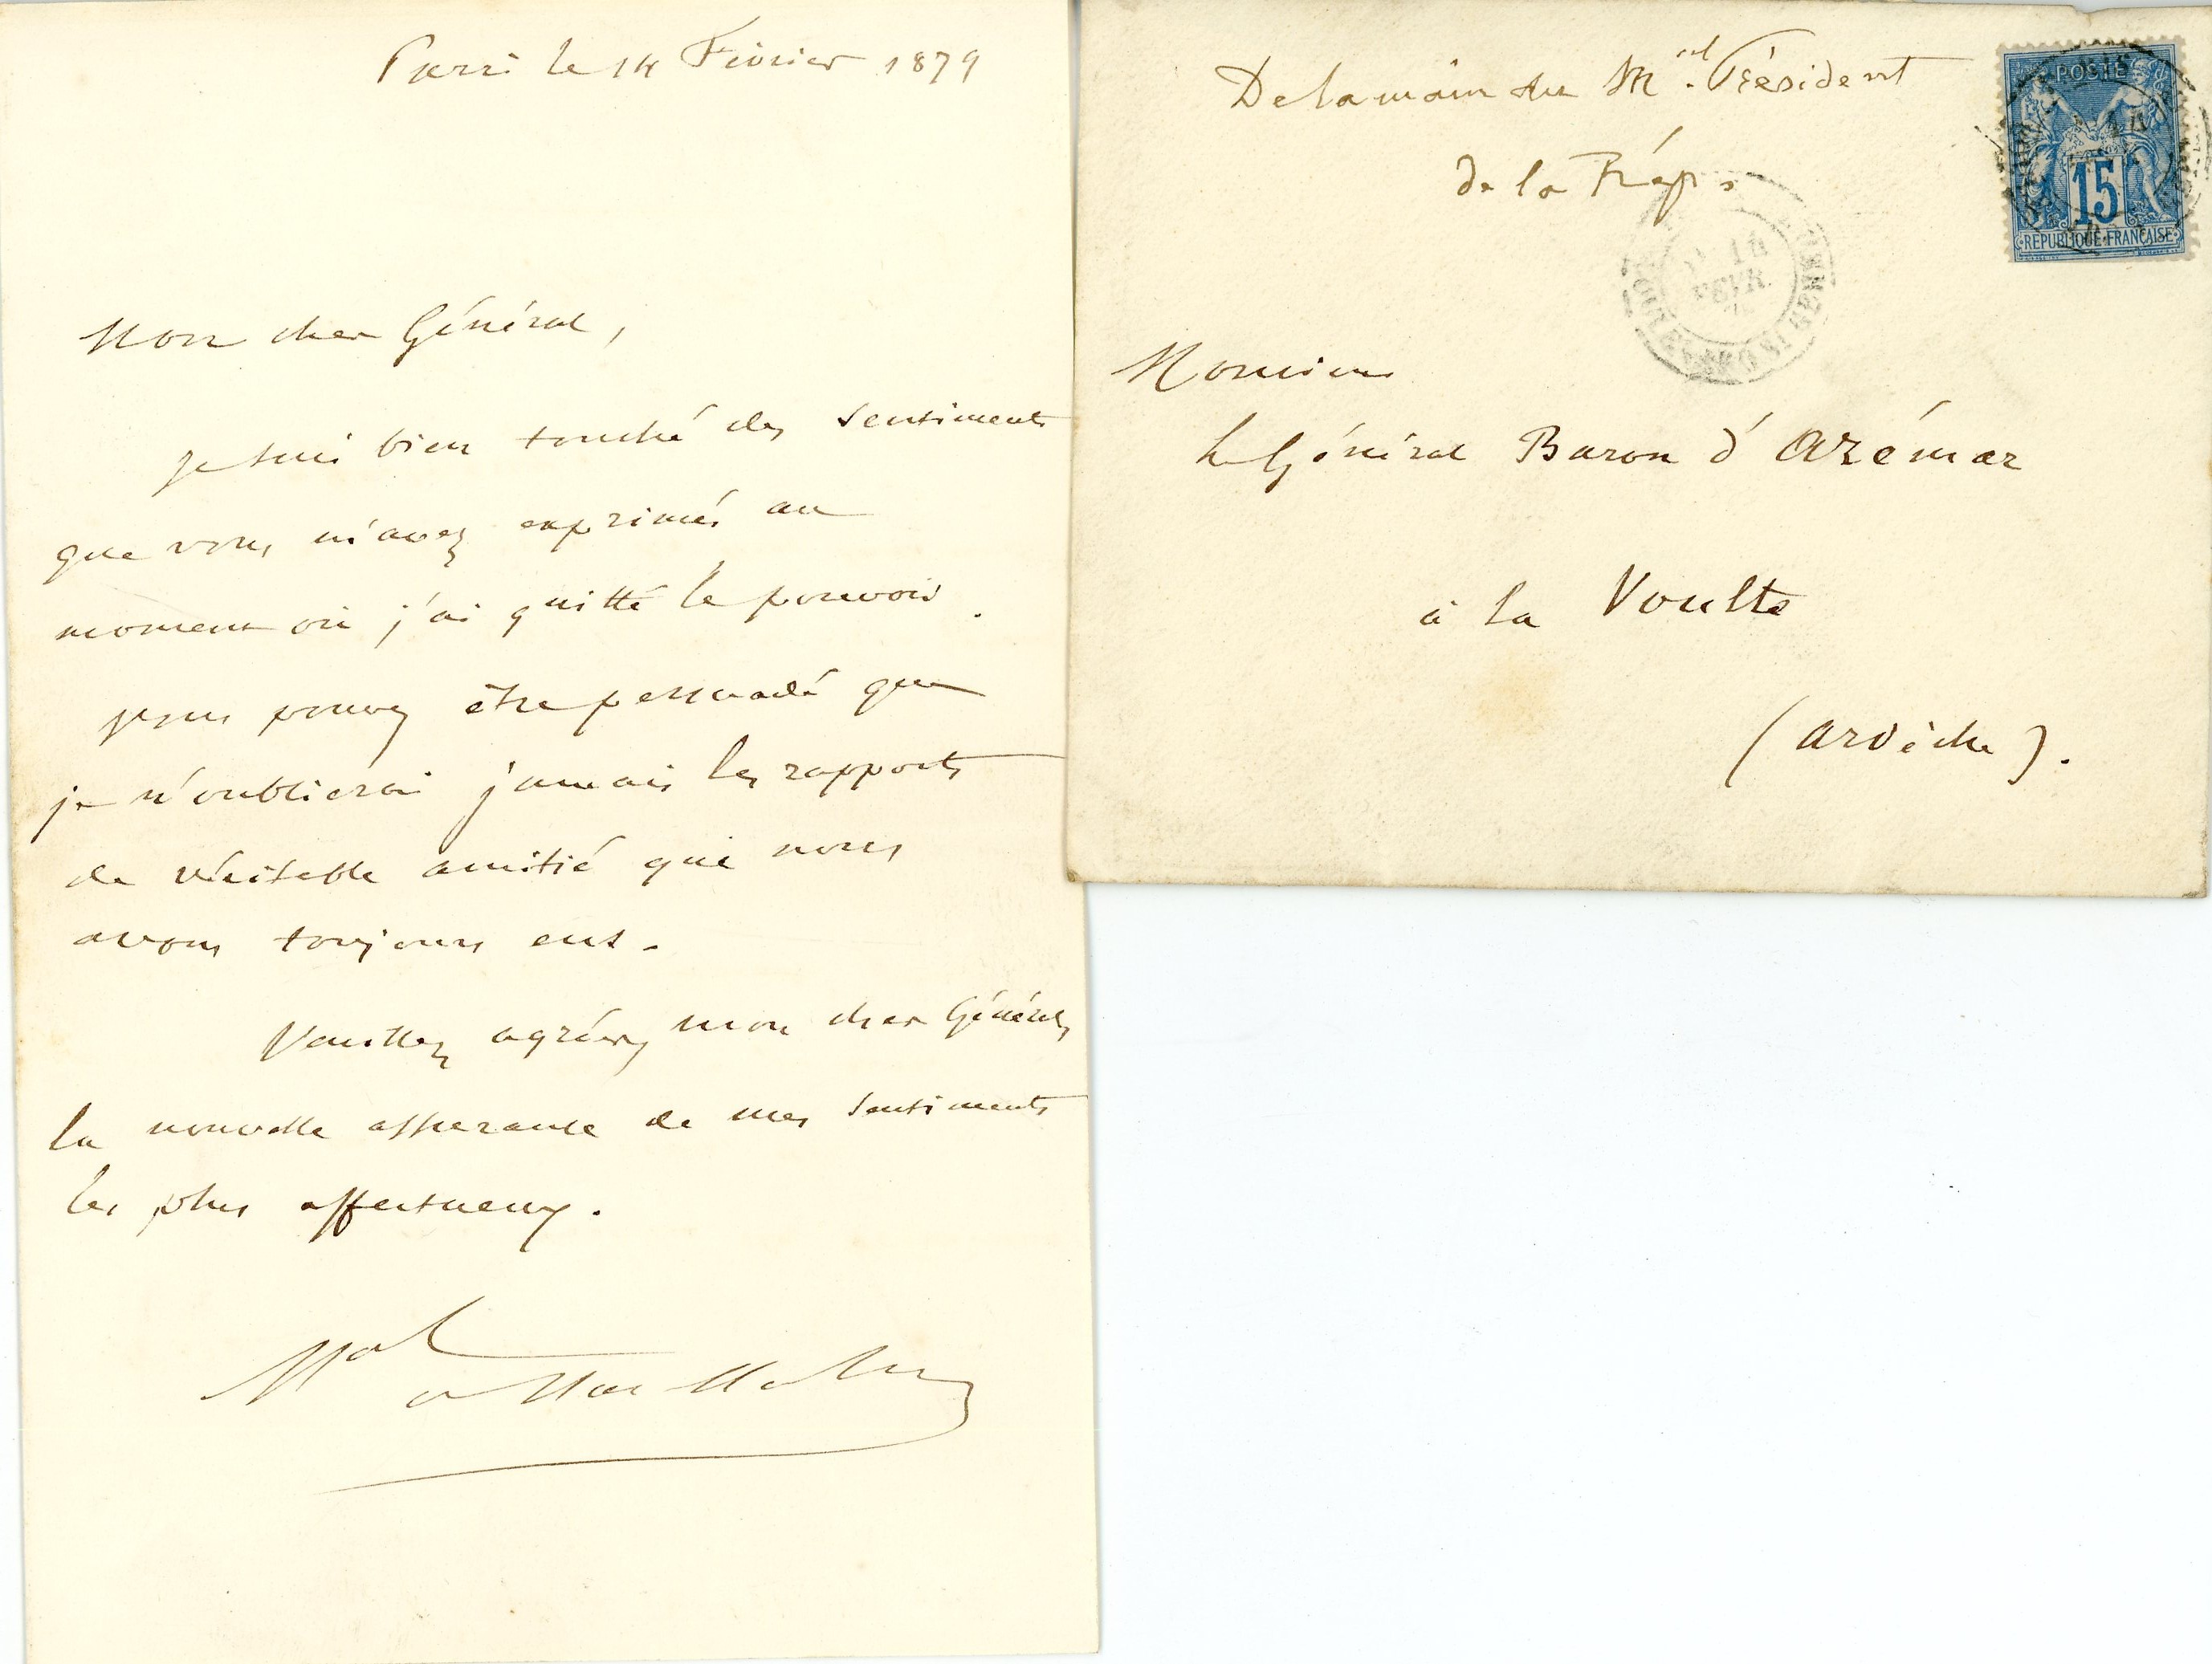 Paris le 14 Février 1879
Mon cher Général,
je suis bien touché des sentiments
que vous m'avez exprimés au
moment où j'ai quitté le pouvoir.
Vous pouvez être persuadé que
je n'oublierai jamais les rapports
de véritable amitié que nous
avons toujours eus.
Veuillez agréer, mon cher Général,
la nouvelle assurance de mes sentiments
les plus affectueux.
Mal de Mac Mahon
De la main du Mal. Président
de la Rép.
POSTES
15
REPUBLIQUE FRANÇAISE
14
FEVR.
Monsieur
le Général Baron d'Azémar
à la Voulte
(Ardèche).